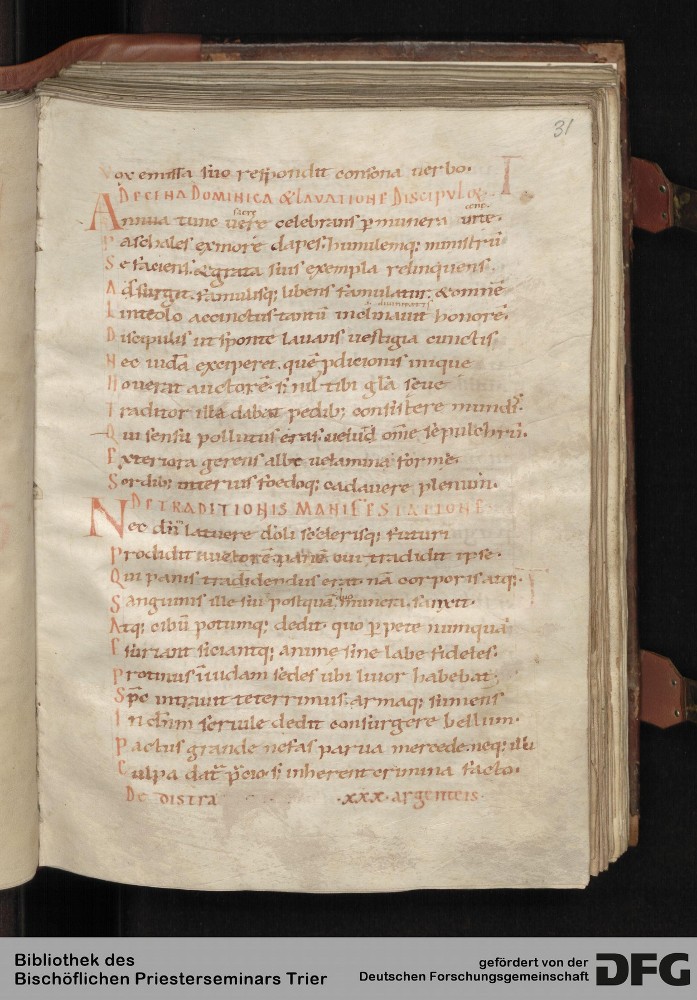 31
Vox emissa suo respondit consona uerbo.
DE CENA DOMINICA & LAVATIONE DISCIPVLOꝜ
Annua tunc uere celebrans ꝑ munera
sacre
cene
Paschales ex more dapes. humilemq; ministrū
Se faciens. & grata suis exempla relinquens.
Ad surgit. famulisq; libens famulatur. & omnē
diuinitatis
Linteolo accinctus tantū inclinauit honorē.
Discipulis ut sponte lauans uestigia cunctis
Nec iudā exciperet. quē ꝑdicionis inique
Nouerat auctorē. s; nil tibi gła seue
Traditor illa dabat pedib; consistere mundis.
Qui sensu pollutus eras. uelud om̄e sepulchrū.
Exteriora gerens albe uelamina forme.
Sordib; interius foedoq; cadauere plenum.
DE TRADITORIS MANIFESTATIONE
Nec dn̄m latuere doli scelerisq; futuri
Prodidit auctorē panē cui tradidit ipse.
Qui panis tradidendus erat. nā corporis atq;
Sanguinis ille sui postquā munera sanxit.
Atq; cibū potumq; dedit. quo ꝑpete numquā
Esuriant sitiantq; anime sine labe fideles.
Protinus ī iudam sedes ubi liuor habebat
Sp̄c intrauit teterrimus. armaq; sumens
In dn̄m seruile dedit consurgere bellum.
Pactus grande nefas parua mercede. neq; illi
Culpa dat p̄cio. s; inherent crimina facto.
De distra .xxx. argenteis.
Bibliothek des
Bischöflichen Priesterseminars Trier
gefördert von der
Deutschen Forschungsgemeinschaft
DFG